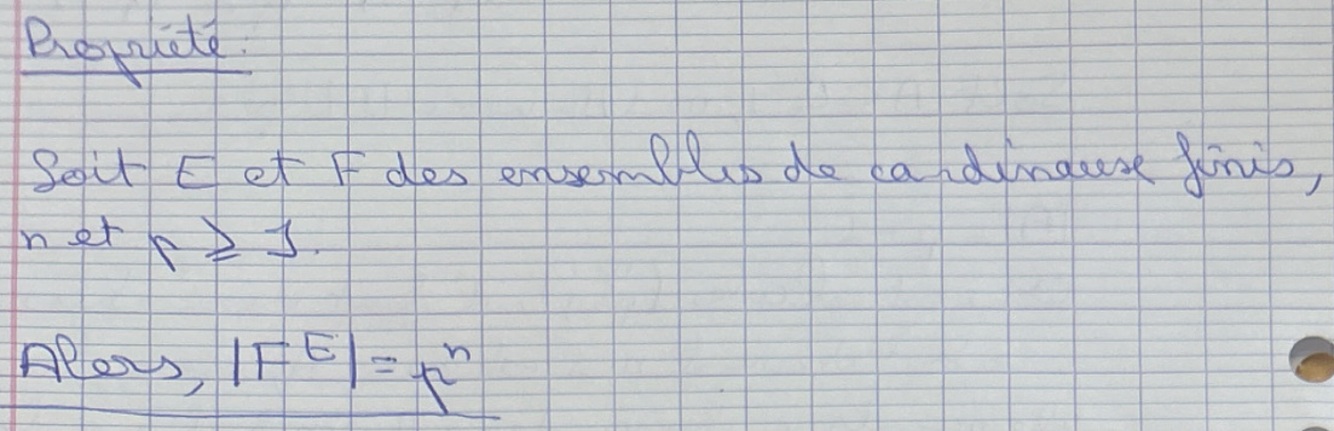 Propriété:
Soit E et F des ensembles de cardinaux finis,
n et p ⩾ 1.
Alors, |F^E| = p^n